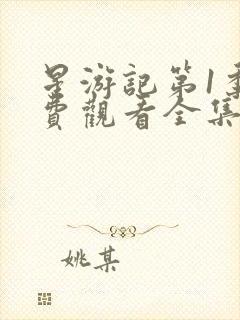 星游記第1季
費觀看全集
姚某